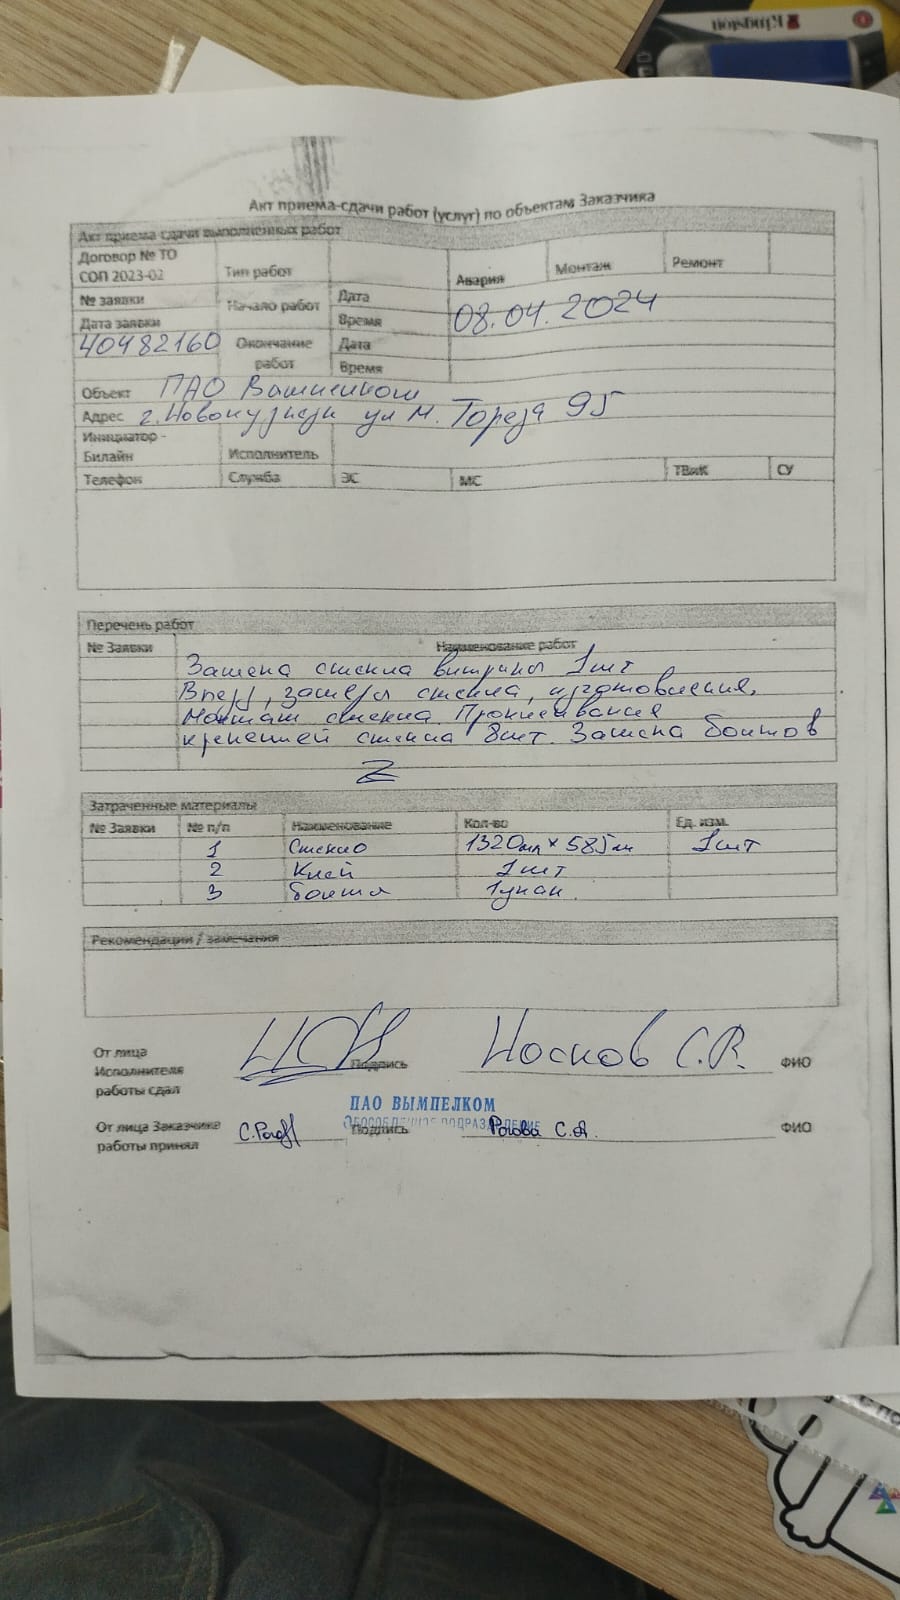 Kingston
Акт приема-сдачи работ (услуг) по объектам Заказчика
Акт приема сдачи выполненных работ
Договор № ТО СОП 2023-02
Тип работ
Авария
Монтаж
Ремонт
№ заявки
Начало работ
Дата
08.04.2024
Дата заявки
Время
40482160
Окончание работ
Дата
Время
Объект ПАО Вымпелком
Адрес г. Новокузнецк ул М. Тореза 95
Инициатор - Билайн
Исполнитель
Телефон
Служба
ЭС
МС
ТВиК
СУ
Перечень работ
№ Заявки
Наименование работ
Замена стекла витрины 1шт
замер стекла, изготовления,
Монтаж стекла. Проклеивания
креплений стекла 8шт. Замена болтов
Z
Затраченные материалы
№ Заявки № п/п Наименование Кол-во Ед. изм.
1 Стекло 1320мм × 585мм 1шт
2 Клей 1шт
3 болты 1упак.
Рекомендации / замечания
От лица Исполнителя работы сдал
Подпись
Носков С.В.
ФИО
ПАО ВЫМПЕЛКОМ
ОБОСОБЛЕННОЕ ПОДРАЗДЕЛЕНИЕ
От лица Заказчика работы принял
Подпись
Рогова С.А.
ФИО